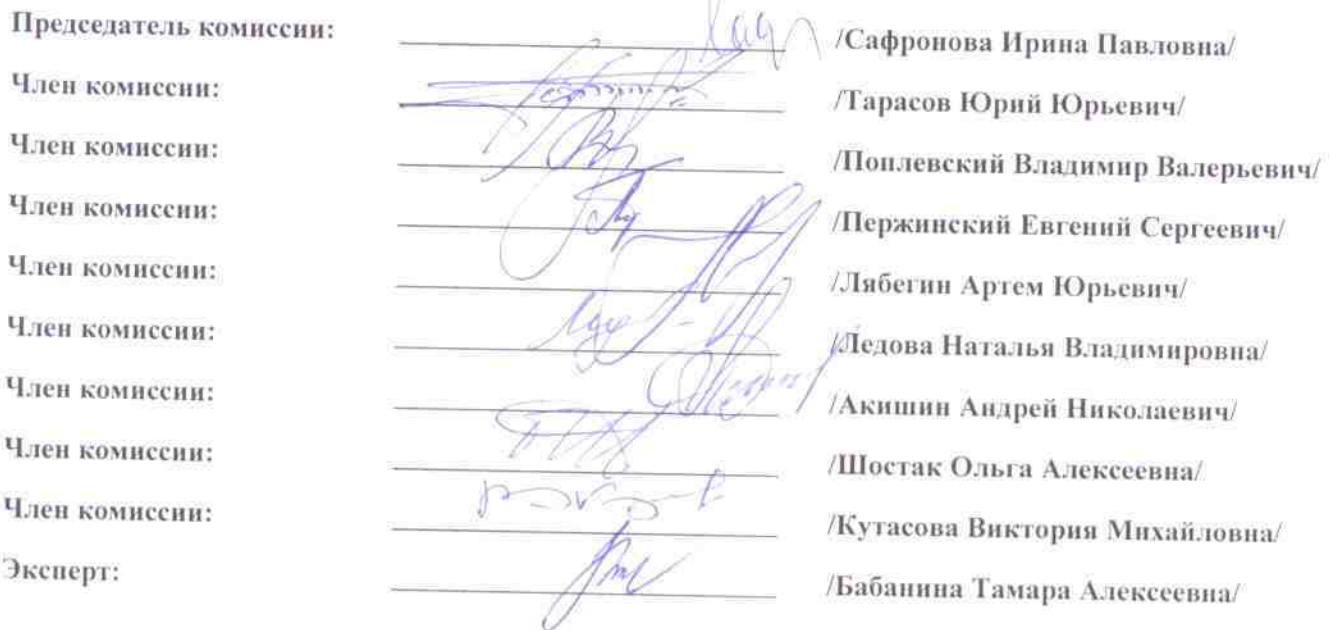 Председатель комиссии: /Сафронова Ирина Павловна/
Член комиссии: /Тарасов Юрий Юрьевич/
Член комиссии: /Поплевский Владимир Валерьевич/
Член комиссии: /Пержинский Евгений Сергеевич/
Член комиссии: /Лябегин Артем Юрьевич/
Член комиссии: /Ледова Наталья Владимировна/
Член комиссии: /Акишин Андрей Николаевич/
Член комиссии: /Шостак Ольга Алексеевна/
Член комиссии: /Кутасова Виктория Михайловна/
Эксперт: /Бабанина Тамара Алексеевна/